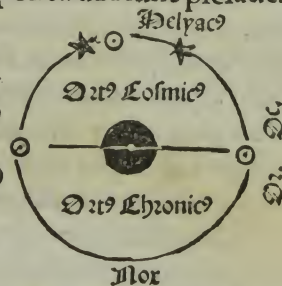 Helyacꝰ
Ortꝰ Coſmicꝰ
Ortꝰ Chronicꝰ
Nox